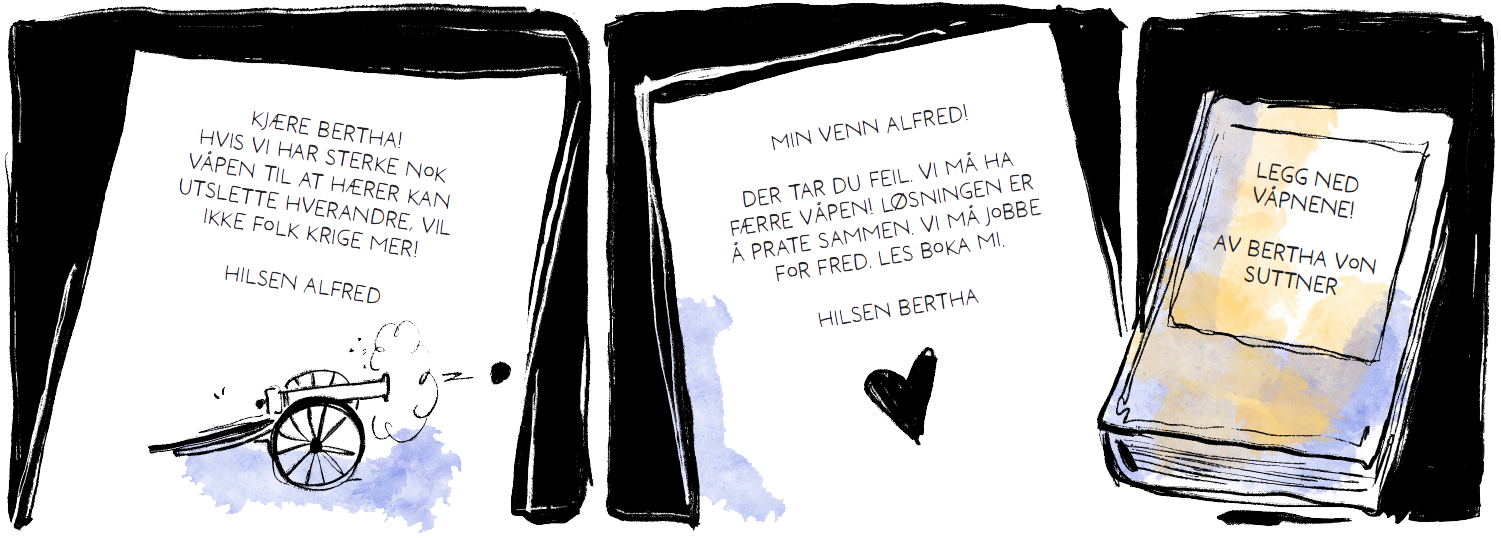 KJÆRE BERTHA!
HVIS VI HAR STERKE NOK
VÅPEN TIL AT HÆRER KAN
UTSLETTE HVERANDRE, VIL
IKKE FOLK KRIGE MER!
HILSEN ALFRED
MIN VENN ALFRED!
DER TAR DU FEIL. VI MÅ HA
FÆRRE VÅPEN! LØSNINGEN ER
Å PRATE SAMMEN. VI MÅ JOBBE
FOR FRED. LES BOKA MI.
HILSEN BERTHA
LEGG NED
VÅPNENE!
AV BERTHA VON
SUTTNER